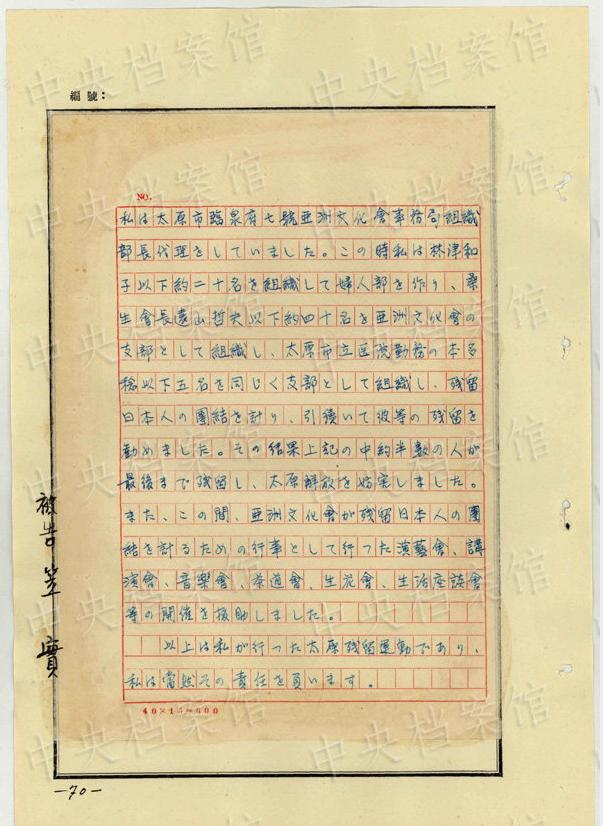 編號：
NO.
私は太原市臨泉府七號亜洲文化會事務局組織
部長代理をしていました。この時私は林津和
子以下約二十名を組織して婦人部を作り、桑
生會長遠山哲夫以下約四十名を亜洲文化會の
支部として組織し、太原市立医院勤務の本多
稔以下五名を同じく支部として組織し、残留
日本人の團結を計り、引續いて彼等の残留を
勧めました。その結果上記の中約半数の人が
最後まで残留し、太原解放を妨害しました。
また、この間、亜洲文化會が残留日本人の團
結を計るための行事として行つた演藝會、講
演會、音樂會、茶道會、生花會、生活座談會
等の開催を援助しました。
以上は私が行つた太原残留運動であり、
私は當然その責任を負います。
40×15=600
被告 笠 實
—70—
中央档案馆